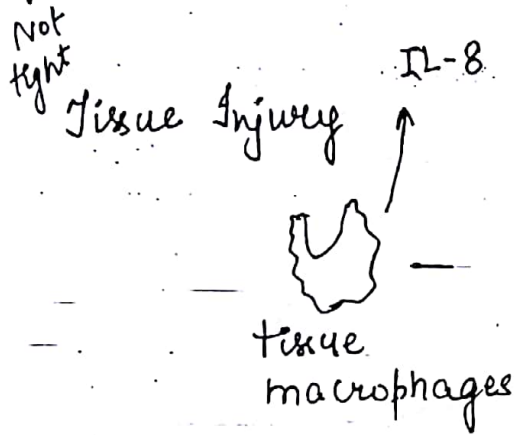 Not
tight
IL-8
Tissue Injury
tissue
macrophages